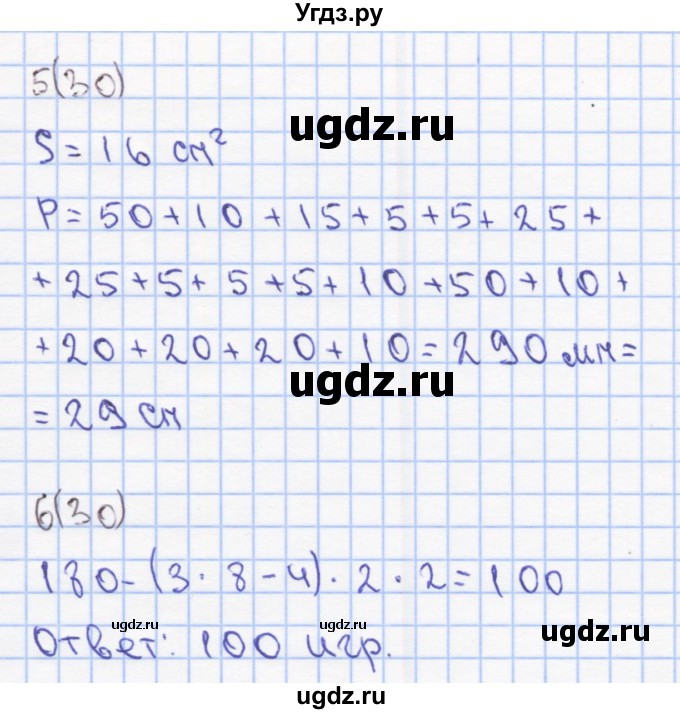 Угдз.ру
5(30)
ugdz.ru
S = 16 см²
P = 50 + 10 + 15 + 5 + 5 + 25 +
+ 25 + 5 + 5 + 5 + 10 + 50 + 10 +
+ 20 + 20 + 20 + 10 = 290 мм =
ugdz.ru
= 29 см
6(30)
180 - (3 · 8 - 4) · 2 · 2 = 100
ugdz.ru
ugdz.ru
Ответ: 100 игр.
ugdz.ru
ugdz.ru